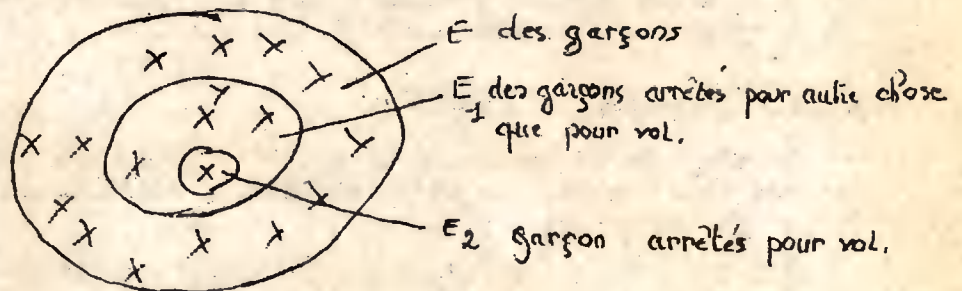 E des garçons
E1 des garçons arrêtés pour autre chose
que pour vol.
E2 garçon arrêtés pour vol.